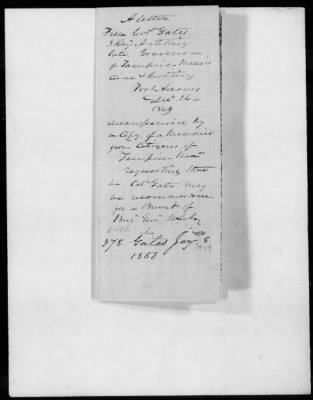 A letter
From Col. Gates,
3 Reg Artillery
late Governor
of Tampico Mexico
Civil & Military
Dec 26
1849
accompanied by
a Copy of a Memorial
from Citizens of
Tampico Mexo
requesting that
Col Gates, may
be recommended
for a Brevet of
Brig Gen
378 Gates Jan 8
1850